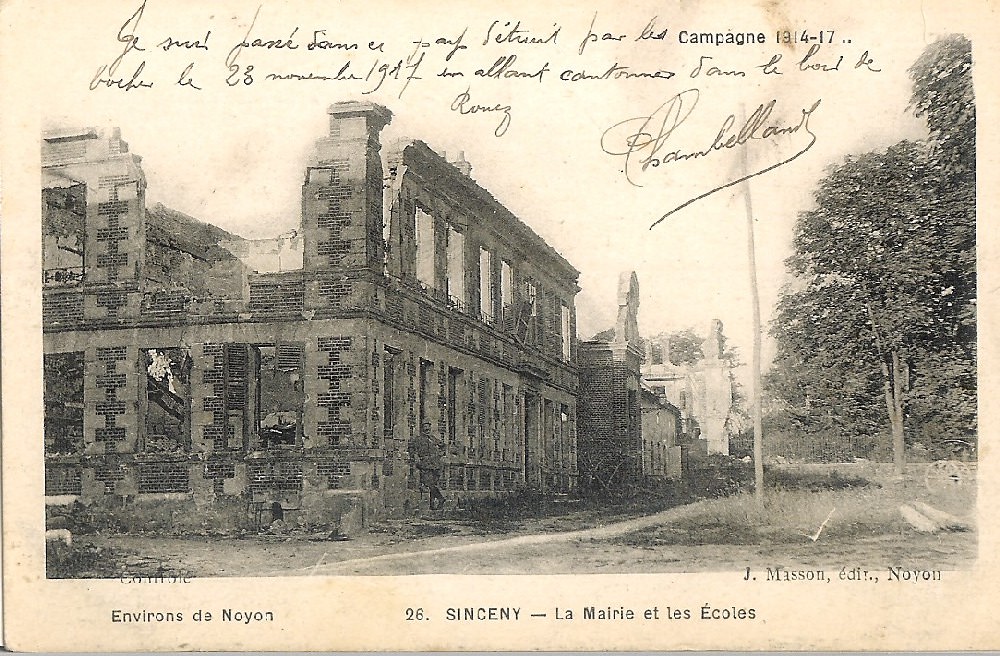 Je suis passé dans ce pays détruit par les
Campagne 1914-17..
boches le 23 novembre 1917 en allant cantonner dans le bois de
Rouez
Chambelland
Contrôle
J. Masson, édir., Noyon
Environs de Noyon
26. SINCENY — La Mairie et les Écoles